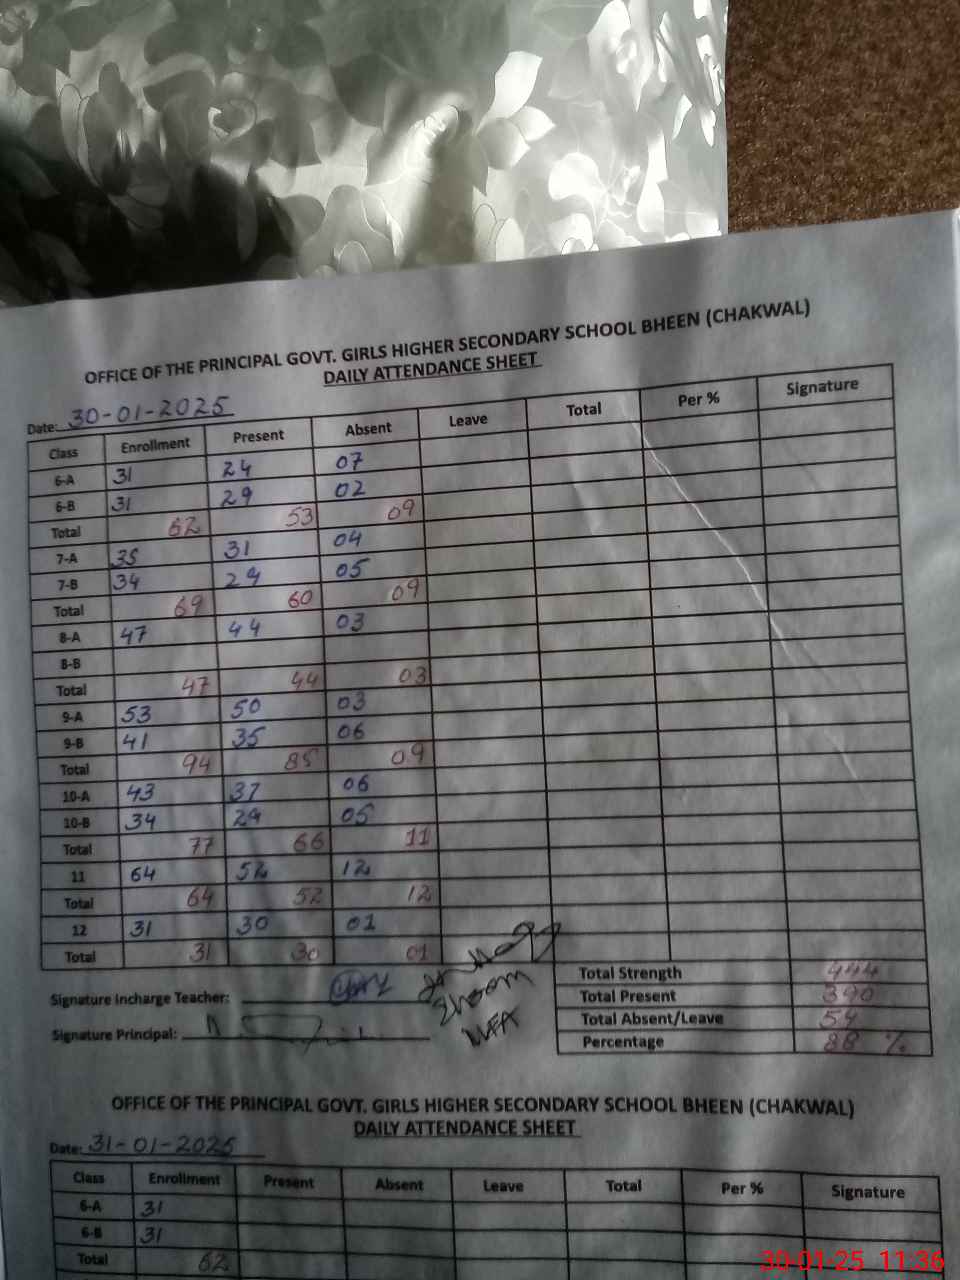 OFFICE OF THE PRINCIPAL GOVT. GIRLS HIGHER SECONDARY SCHOOL BHEEN (CHAKWAL)
DAILY ATTENDANCE SHEET
Date: 30-01-2025
Class Enrollment Present Absent Leave Total Per % Signature
6-A 31 24 07
6-B 31 29 02
Total 62 53 09
7-A 35 31 04
7-B 34 29 05
Total 69 60 09
8-A 47 44 03
8-B
Total 47 44 03
9-A 53 50 03
9-B 41 35 06
Total 94 85 09
10-A 43 37 06
10-B 34 29 05
Total 77 66 11
11 64 52 12
Total 64 52 12
12 31 30 01
Total 31 30 01
Total Strength 444
Signature Incharge Teacher:
Total Present 390
Total Absent/Leave 54
Signature Principal:
Percentage 88 %
OFFICE OF THE PRINCIPAL GOVT. GIRLS HIGHER SECONDARY SCHOOL BHEEN (CHAKWAL)
DAILY ATTENDANCE SHEET
Date: 31-01-2025
Class Enrollment Present Absent Leave Total Per % Signature
6-A 31
6-B 31
Total 62
30-01-25 11:36